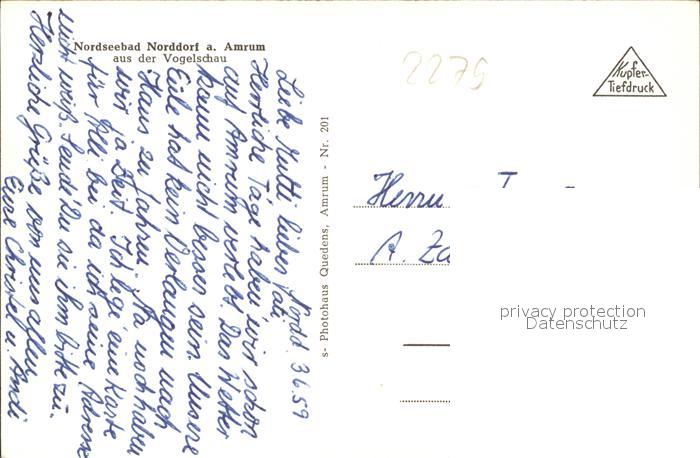 Nordseebad Norddorf a. Amrum
aus der Vogelschau
2275
Kupfer-
Tiefdruck
Nordd. 3.6.59
Liebe Mutti, lieber
Herrliche Tage haben wir schon
auf Amrum verlebt. Das Wetter
kann nicht besser sein. Unsere
Eule hat kein Verlangen nach
Haus zu fahren. Na noch haben
wir ja Zeit. Ich lege eine Karte
für bei da ich seine Adresse
nicht weiß. Send' Du sie ihm bitte zu.
Herzliche Grüße von uns allen
Eure Christel u. Andi
s- Photohaus Quedens, Amrum - Nr. 201
Herrn
A. Za
privacy protection
Datenschutz